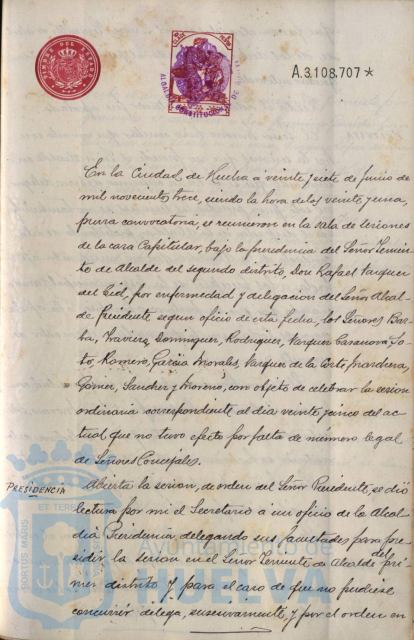 TIMBRE DEL ESTADO
ALCALDIA CONSTITUCIONAL DE
A.3.108.707*
En la Ciudad de Huelva a veinte y siete de junio de
mil novecientos trece, siendo la hora de las veinte y una,
previa convocatoria, se reunieron en la sala de sesiones
de la casa Capitular, bajo la presidencia del Señor Tenien-
te de Alcalde del segundo distrito, Don Rafael Vazquez
del Cid, por enfermedad y delegacion del Señor Alcal-
de Presidente segun oficio de esta fecha, los Señores Bar-
ba, Traviera, Dominguez, Rodriguez, Vazquez Casanova, So-
to, Romero, Garcia Morales, Vazquez de la Corte, Marchena,
Gomez, Sanchez y Moreno, con objeto de celebrar la sesion
ordinaria correspondiente al dia veinte y cinco del ac-
tual que no tuvo efecto por falta de número legal
de Señores Concejales.
PRESIDENCIA
Abierta la sesion, de orden del Señor Presidente, se dió
lectura por mi el Secretario a un oficio de la Alcal-
dia Presidencia delegando sus facultades para pre-
sidir la sesion en el Señor Teniente de Alcalde del pri-
mer distrito y para el caso de que no pudiese
concurrir delega, sucesivamente, y por el orden en
PORTUS MARIS ET TERRAE
Ayuntamiento de
HUELVA